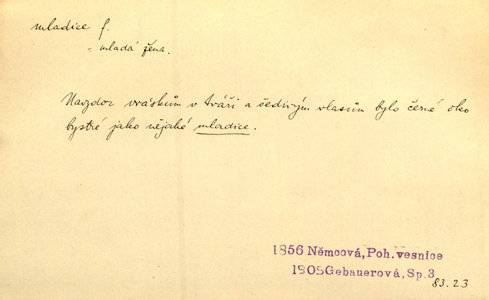 mladice f.
= mladá žena.
Navzdor vráskům v tváři a šedivým vlasům bylo černé oko
bystré jako nějaké mladice.
1856 Němcová, Poh. vesnice
1905 Gebauerová, Sp. 3
83.23